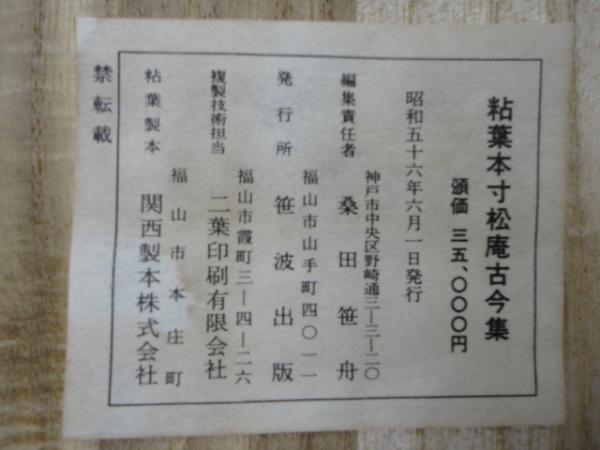 粘葉本寸松庵古今集
頒価 三五、〇〇〇円
昭和五十六年六月一日発行
神戸市中央区野崎通三―三―二〇
編集責任者 桑田笹舟
福山市山手町四〇一一
発行所 笹波出版
福山市霞町三―四―二六
複製技術担当 二葉印刷有限会社
福山市本庄町
粘葉製本 関西製本株式会社
禁転載